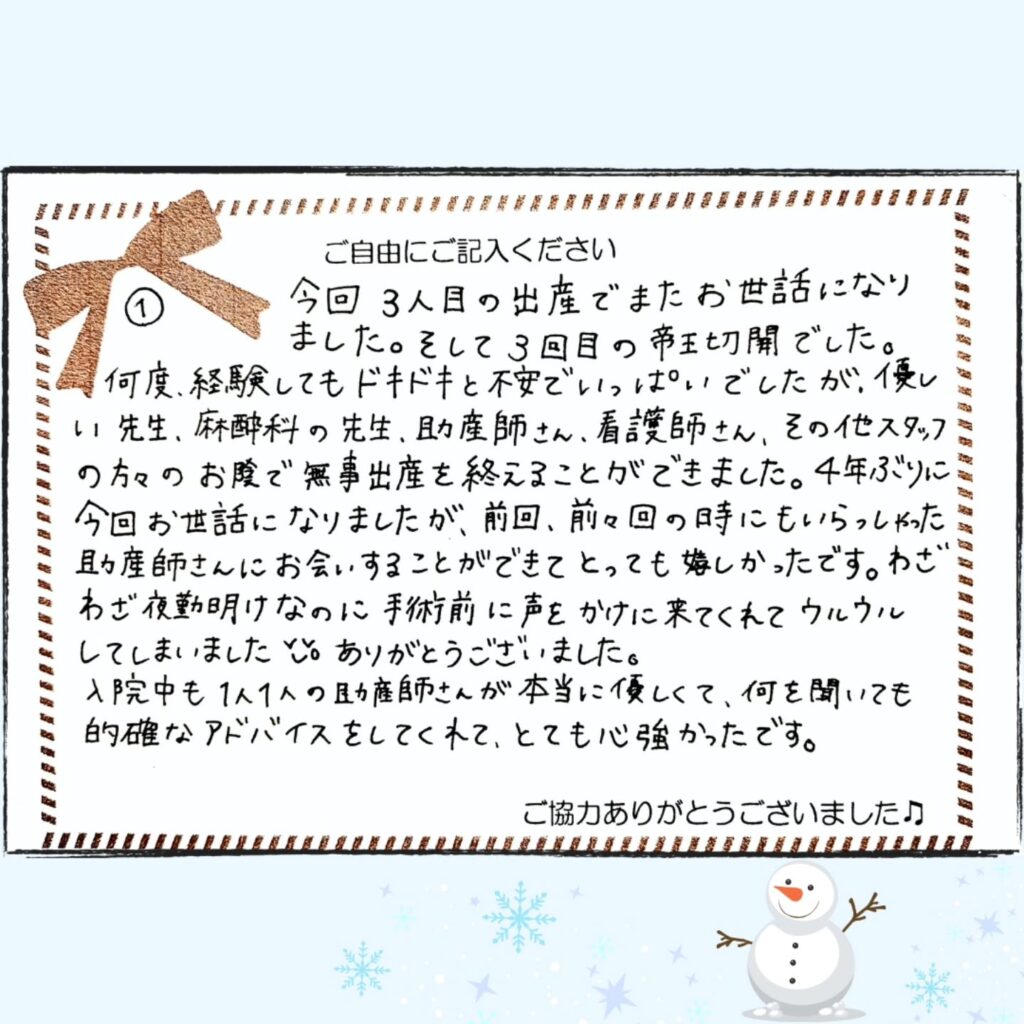 ご自由にご記入ください
①
今回 3人目の出産でまたお世話になり
ました。そして3回目の帝王切開でした。
何度、経験してもドキドキと不安でいっぱいでしたが、優し
い先生、麻酔科の先生、助産師さん、看護師さん、その他スタッフ
の方々のお陰で無事出産を終えることができました。4年ぶりに
今回お世話になりましたが、前回、前々回の時にもいらっしゃった
助産師さんにお会いすることができてとっても嬉しかったです。わざ
わざ夜勤明けなのに手術前に声をかけに来てくれてウルウル
してしまいました。ありがとうございました。
入院中も1人1人の助産師さんが本当に優しくて、何を聞いても
的確なアドバイスをしてくれて、とても心強かったです。
ご協力ありがとうございました♫